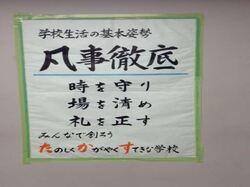 学校生活の基本姿勢
凡事徹底
時を守り
場を清め
礼を正す
みんなで創ろう
たのしくかがやくすてきな学校